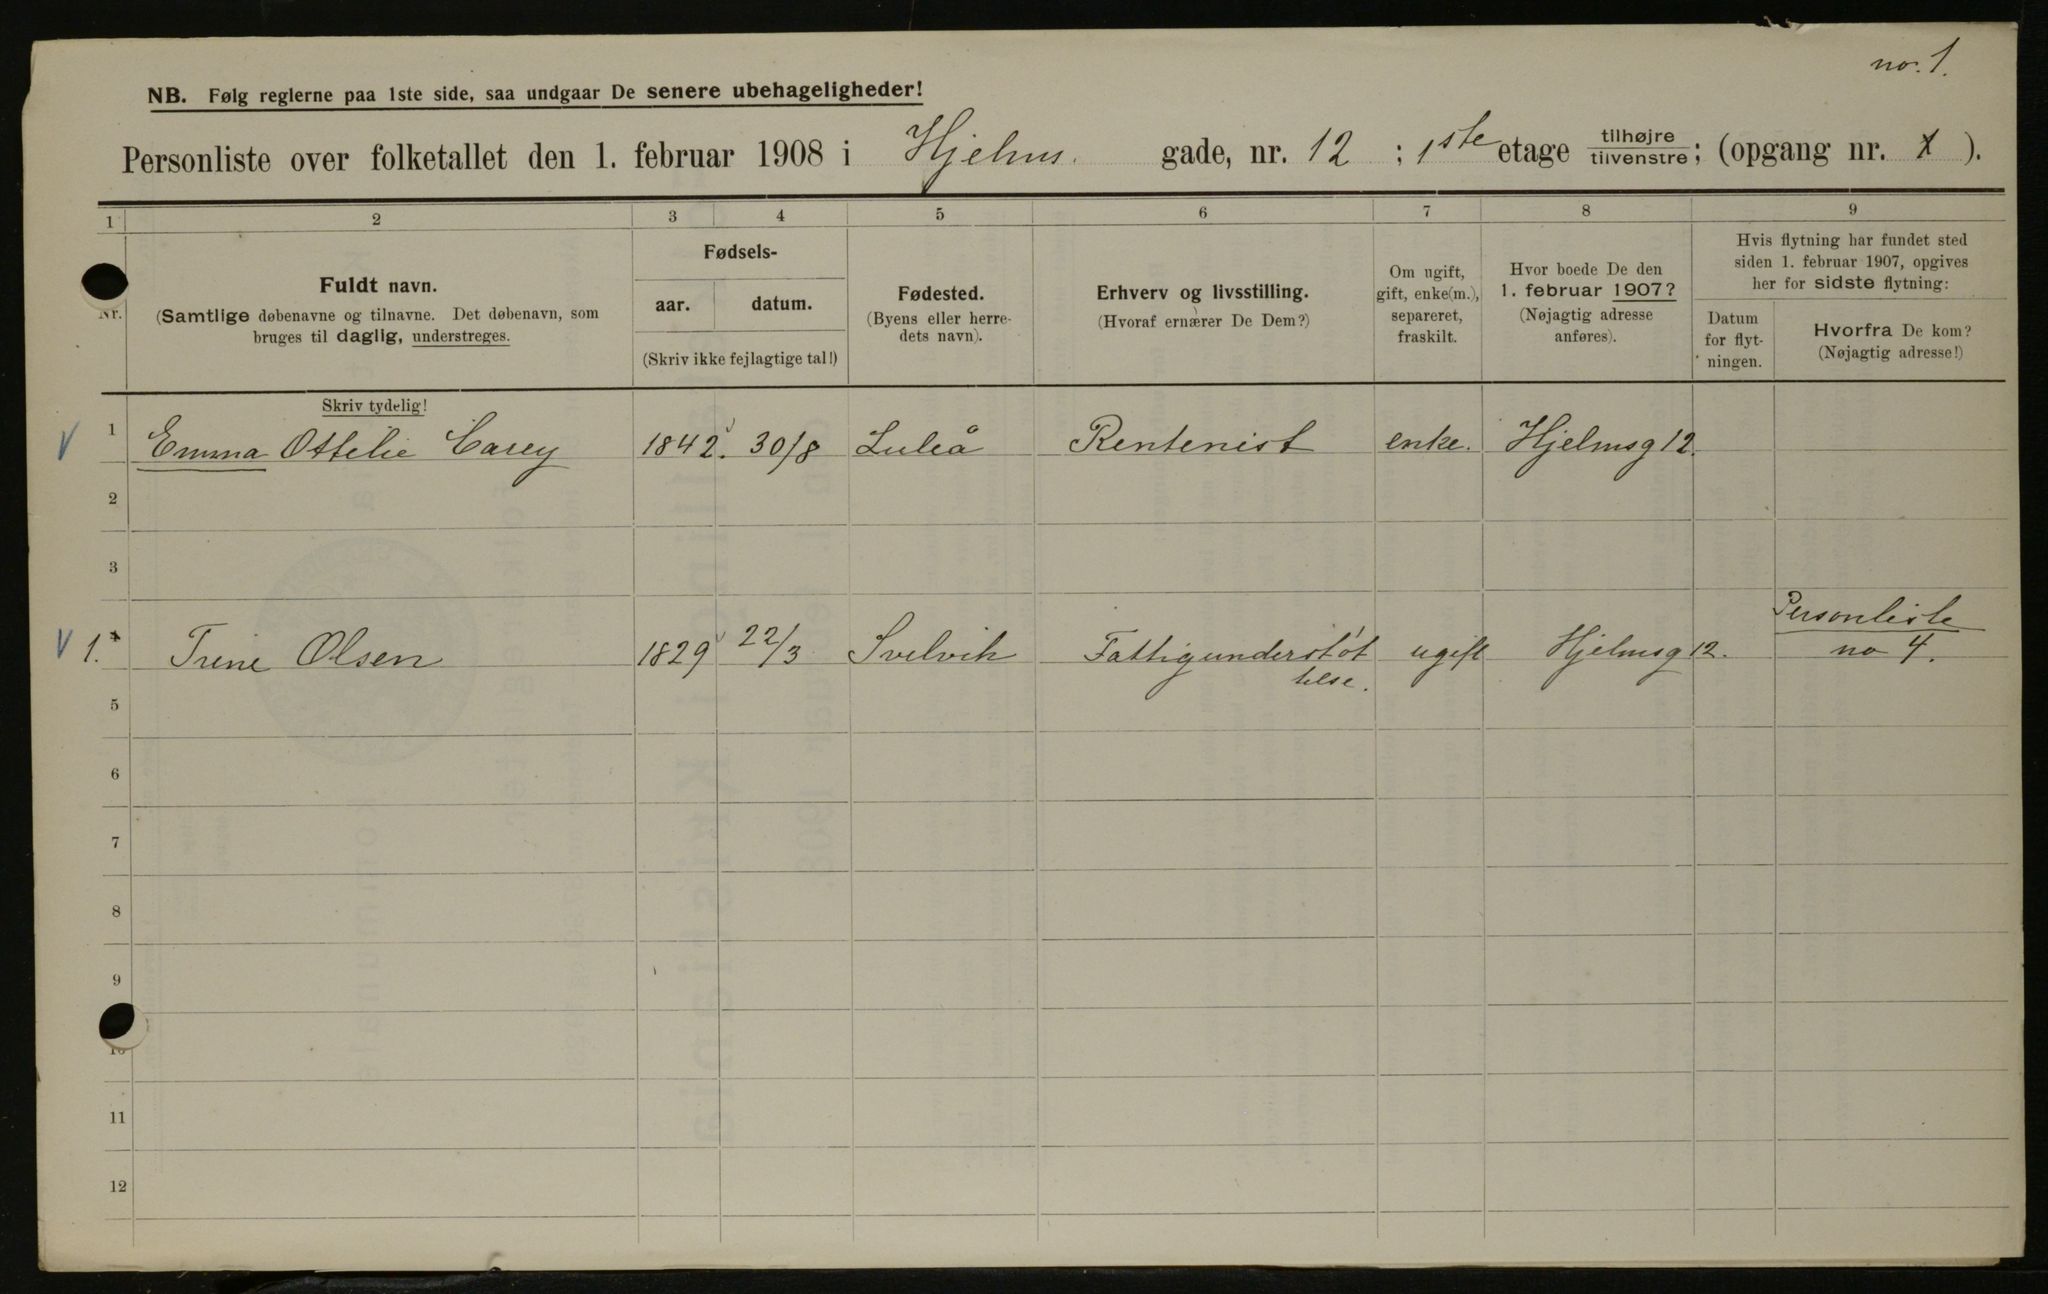 no. 1.
NB. Følg reglerne paa 1ste side, saa undgaar De senere ubehageligheder!
Personliste over folketallet den 1. februar 1908 i Hjelms. gade, nr. 12 ; 1ste etage tilhøjre/tilvenstre; (opgang nr. 1 ).
1 2 3 4 5 6 7 8 9
Nr.
Fuldt navn.
(Samtlige døbenavne og tilnavne. Det døbenavn, som
bruges til daglig, understreges.
Skriv tydelig!
Fødsels-
aar. datum.
(Skriv ikke fejlagtige tal!)
Fødested.
(Byens eller herre-
dets navn).
Erhverv og livsstilling.
(Hvoraf ernærer De Dem?)
Om ugift,
gift, enke(m.),
separeret,
fraskilt.
Hvor boede De den
1. februar 1907?
(Nøjagtig adresse
anføres).
Hvis flytning har fundet sted
siden 1. februar 1907, opgives
her for sidste flytning:
Datum
for flyt-
ningen.
Hvorfra De kom?
(Nøjagtig adresse!)
V 1 Emma Ottelie Carey 1842. 30/8 Luleå Rentenist enke. Hjelmsg 12.
2
3
Personliste
V 1. 4 Trine Olsen 1829 22/3 Svelvik Fattigunderstøt ugift Hjelmsg 12. no 4.
telse.
5
6
7
8
9
10
11
12